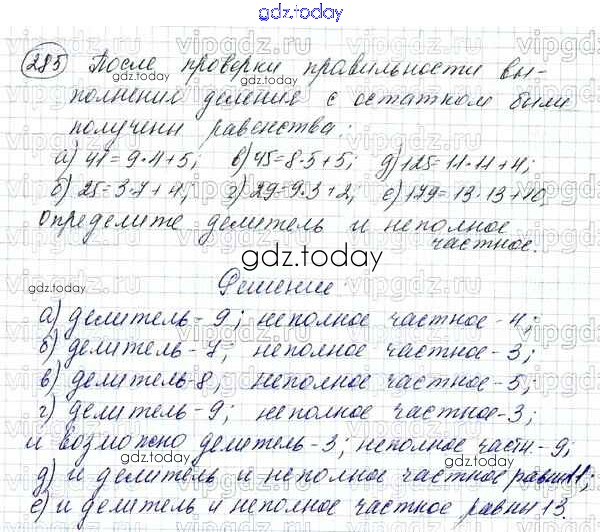 gdz.today
285) После проверки правильности вы-
полнения деления с остатком были
получены равенства:
а) 41=9·4+5; в) 45=8·5+5; д) 125=11·11+4;
б) 25=3·7+4; г) 29=9·3+2; е) 179=13·13+10.
Определите делитель и неполное
частное.
gdz.today
Решение
а) делитель-9; неполное частное-4;
б) делитель-7; неполное частное-3;
в) делитель-8, неполное частное-5;
г) делитель-9; неполное частное-3;
и возможно делитель-3; неполное частн.-9;
д) и делитель и неполное частное равны 11;
е) и делитель и неполное частное равны 13.
gdz.today